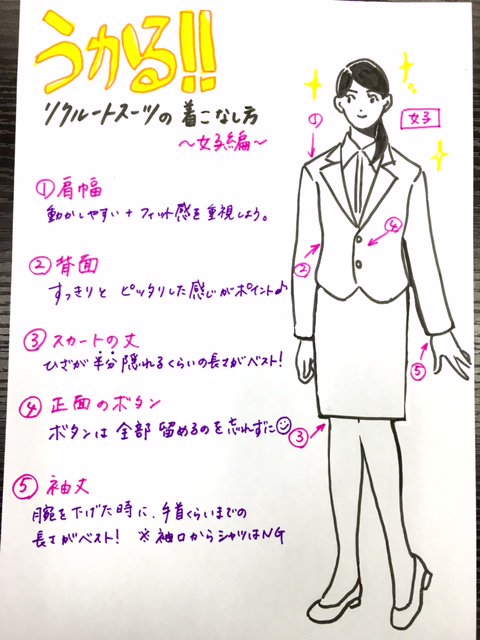 うかる!!
リクルートスーツの着こなし方
～女子編～
① 肩幅
動かしやすい + フィット感を重視しよう。
② 背面
すっきりと ピッタリした感じがポイント♪
③ スカートの丈
ひざが半分隠れるくらいの長さがベスト!
④ 正面のボタン
ボタンは全部留めるのを忘れずに☺
⑤ 袖丈
腕を下げた時に、手首くらいまでの
長さがベスト! ※袖口からシャツはNG
①
女子
④
②
⑤
③